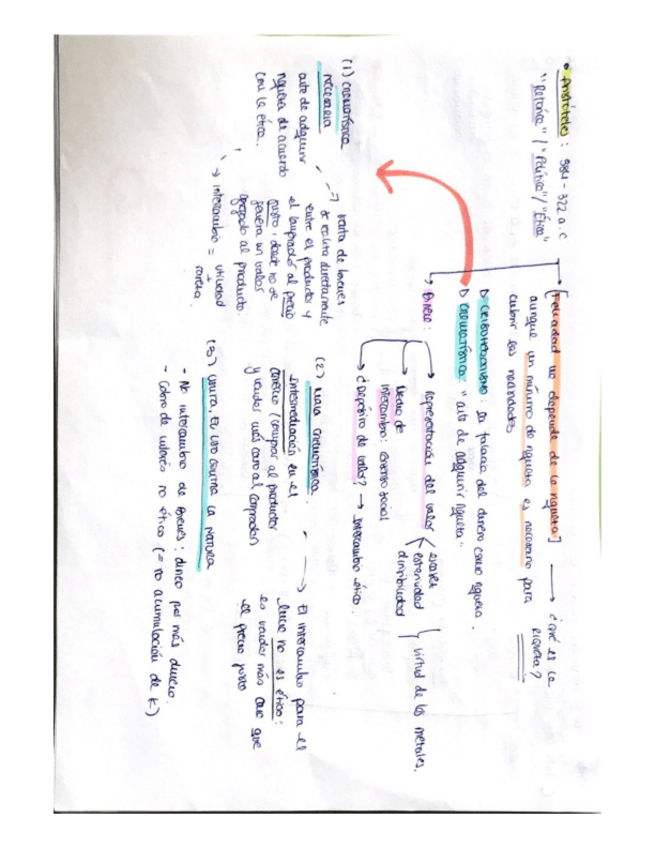 • Aristóteles: 384 - 322 a.c
"Retórica" / "Política" / "Ética"
[Felicidad no depende de la riqueza] → ¿qué es la
riqueza?
aunque un mínimo de riqueza es necesario para
cubrir las necesidades
▷ : la falacia del dinero como riqueza.
▷ CREMATÍSTICA: "arte de adquirir riqueza"
Dinero:
→ Representación del valor
escasez
eternidad
divisibilidad
virtud de los metales.
→ Medio de
intercambio: control social
→ ¿Depósito de valor? → Intercambio ético.
(1) CREMATÍSTICA
necesaria
arte de adquirir
riqueza de acuerdo
con la ética.
→ venta de bienes
se realiza directamente
entre el productor y
el comprador al precio
justo, donde no se
genera un valor
agregado al producto.
→ intercambio = utilidad
+
(2) MALA CREMATÍSTICA.
Intermediación en el
comercio (comprar al productor
y vender más caro al comprador)
→ El intercambio para el
lucro no es ético:
es vender más caro que
el precio justo
(3) USURA, EL USO CONTRA LA NATURA
- No intercambio de bienes: dinero por más dinero.
- Cobro de interés no ético (= no acumulación de K)